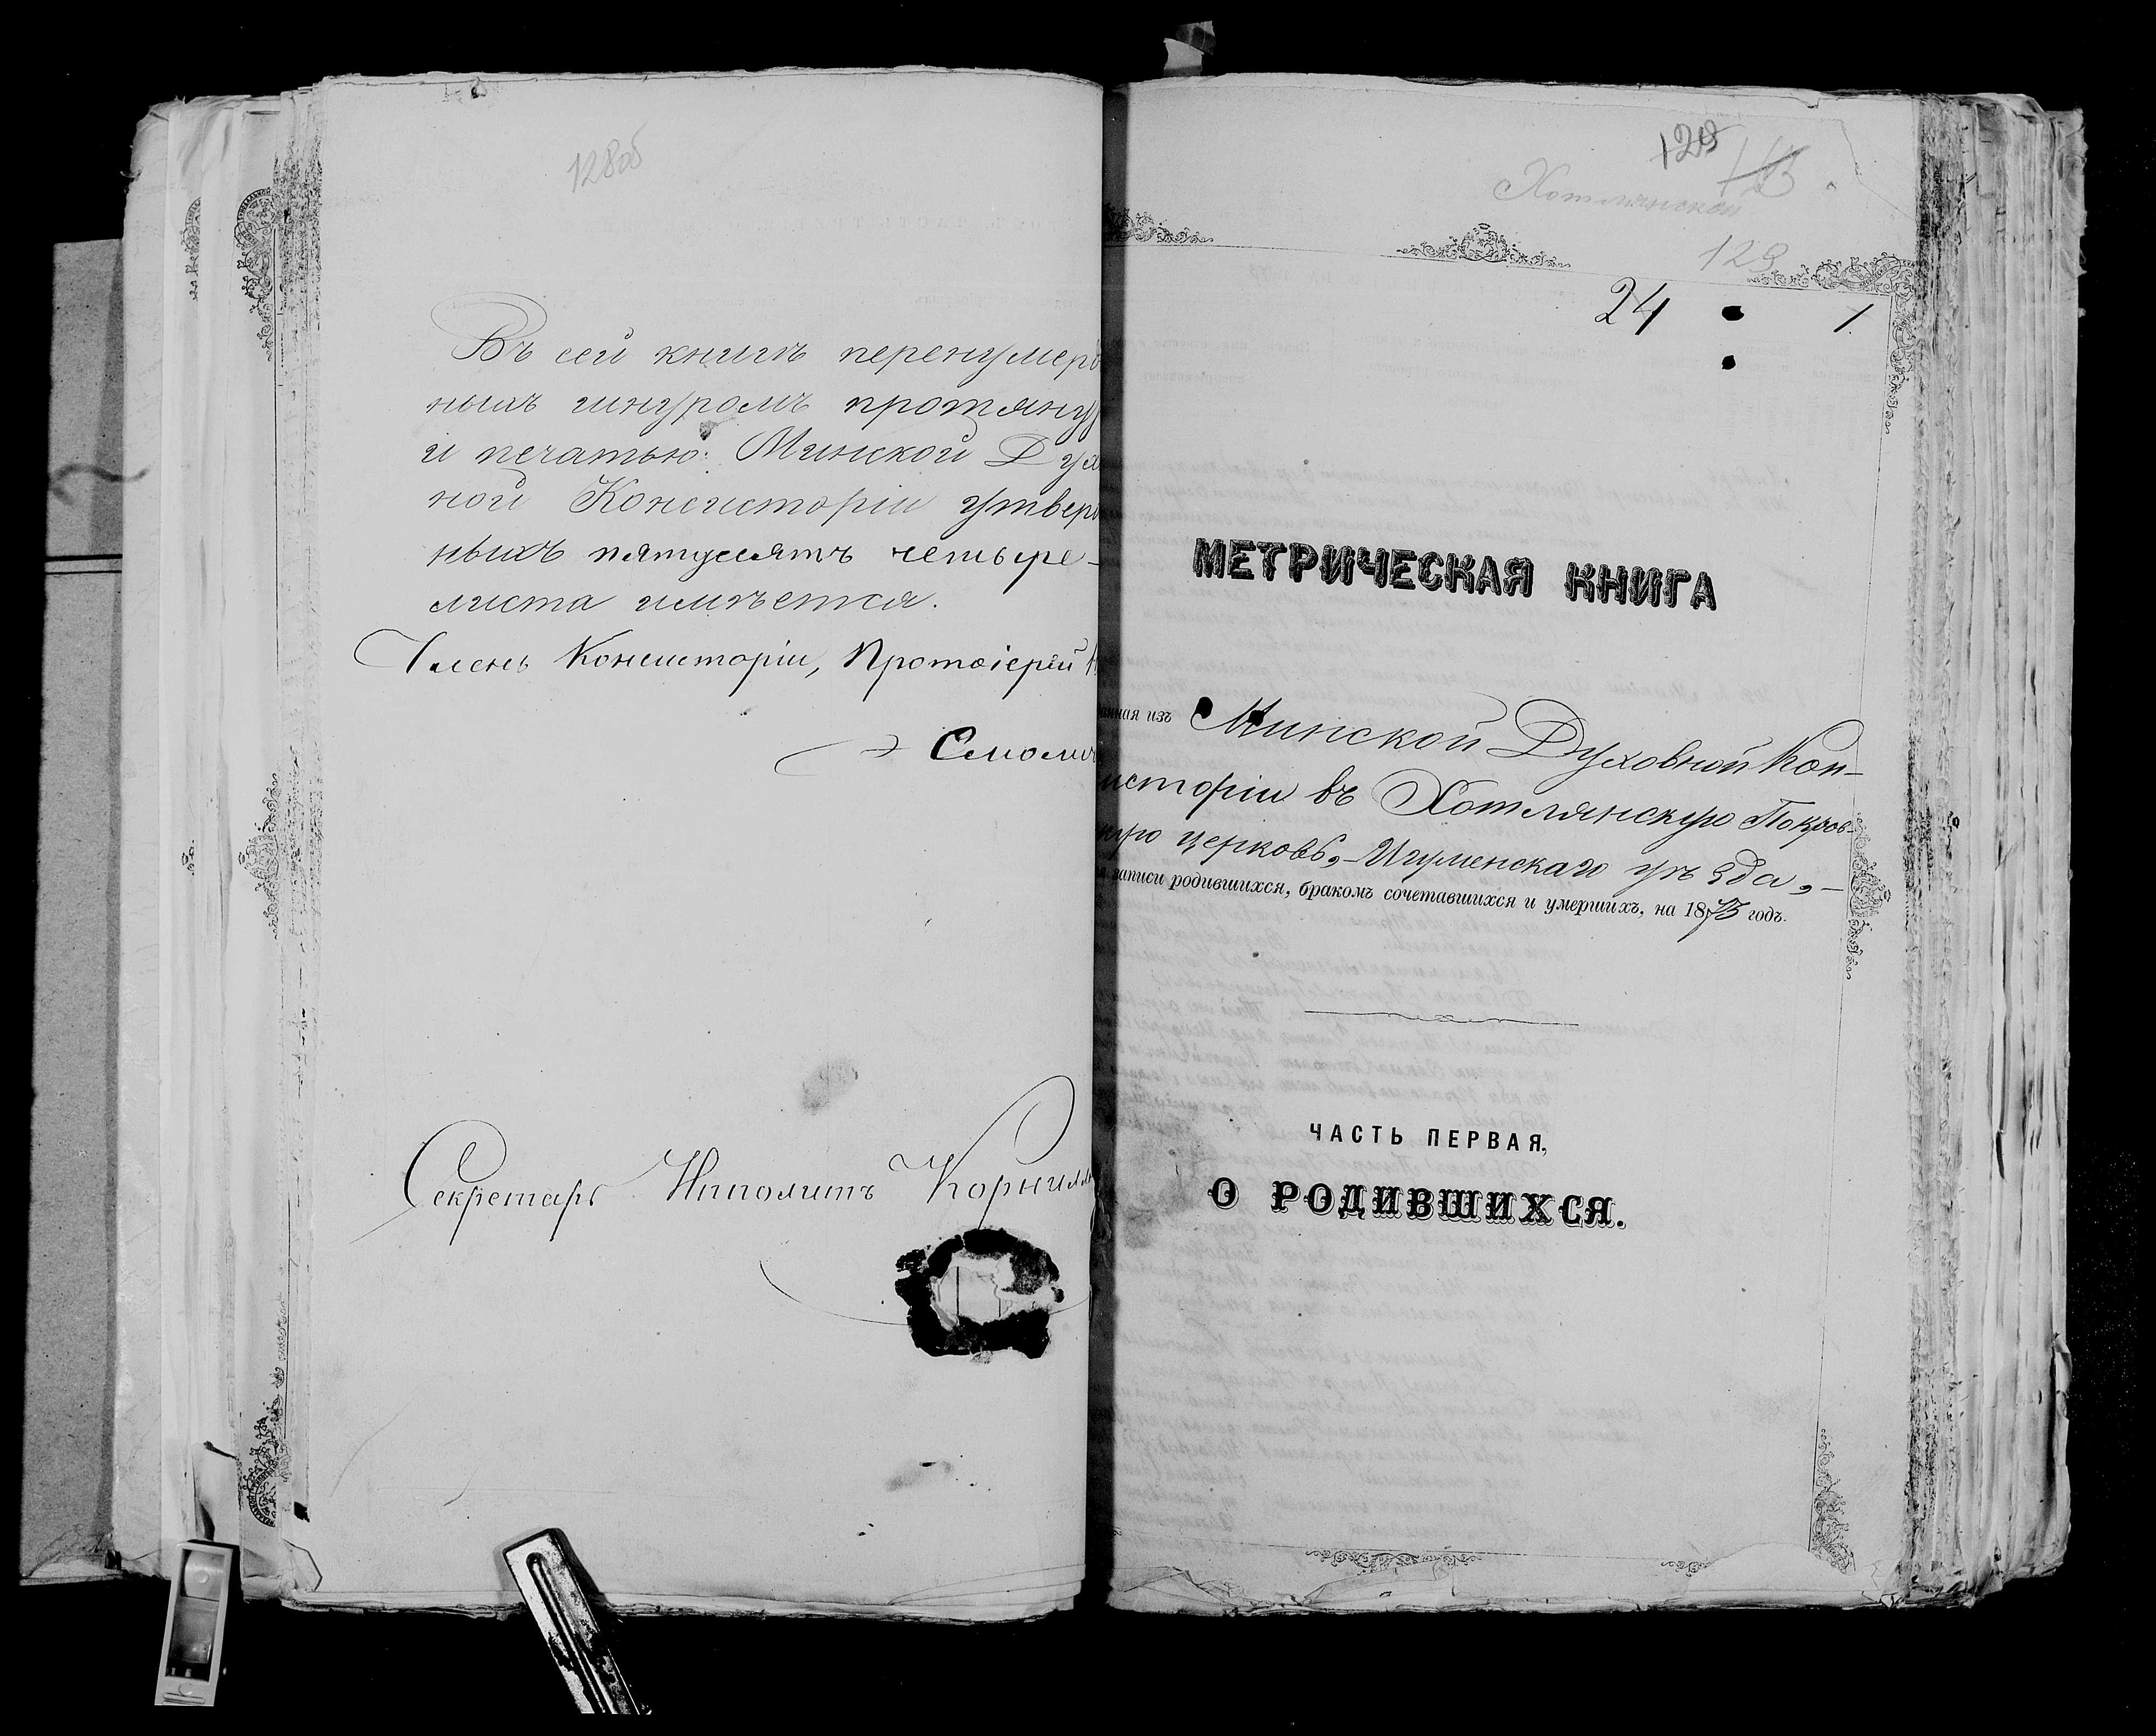 128об
Въ сей книгѣ перенумеро
ныхъ шнуромъ протяну
и печатью Минской Дух
ной Консисторіи утверж
ныхъ пятдесятъ четыре-
листа имѣется.
Членъ Консисторіи, Протоіерей
Смолич
Секретарь Ипполитъ Корнил
129
Хотлянской
129
24 1.
МЕТРИЧЕСКАЯ КНИГА
анная изъ Минской Духовной Кон-
систоріи въ Хотлянскую Покров-
скую церковь,-Игуменскаго уѣзда,-
записи родившихся, бракомъ сочетавшихся и умершихъ, на 1873 годъ.
ЧАСТЬ ПЕРВАЯ,
О РОДИВШИХСЯ.